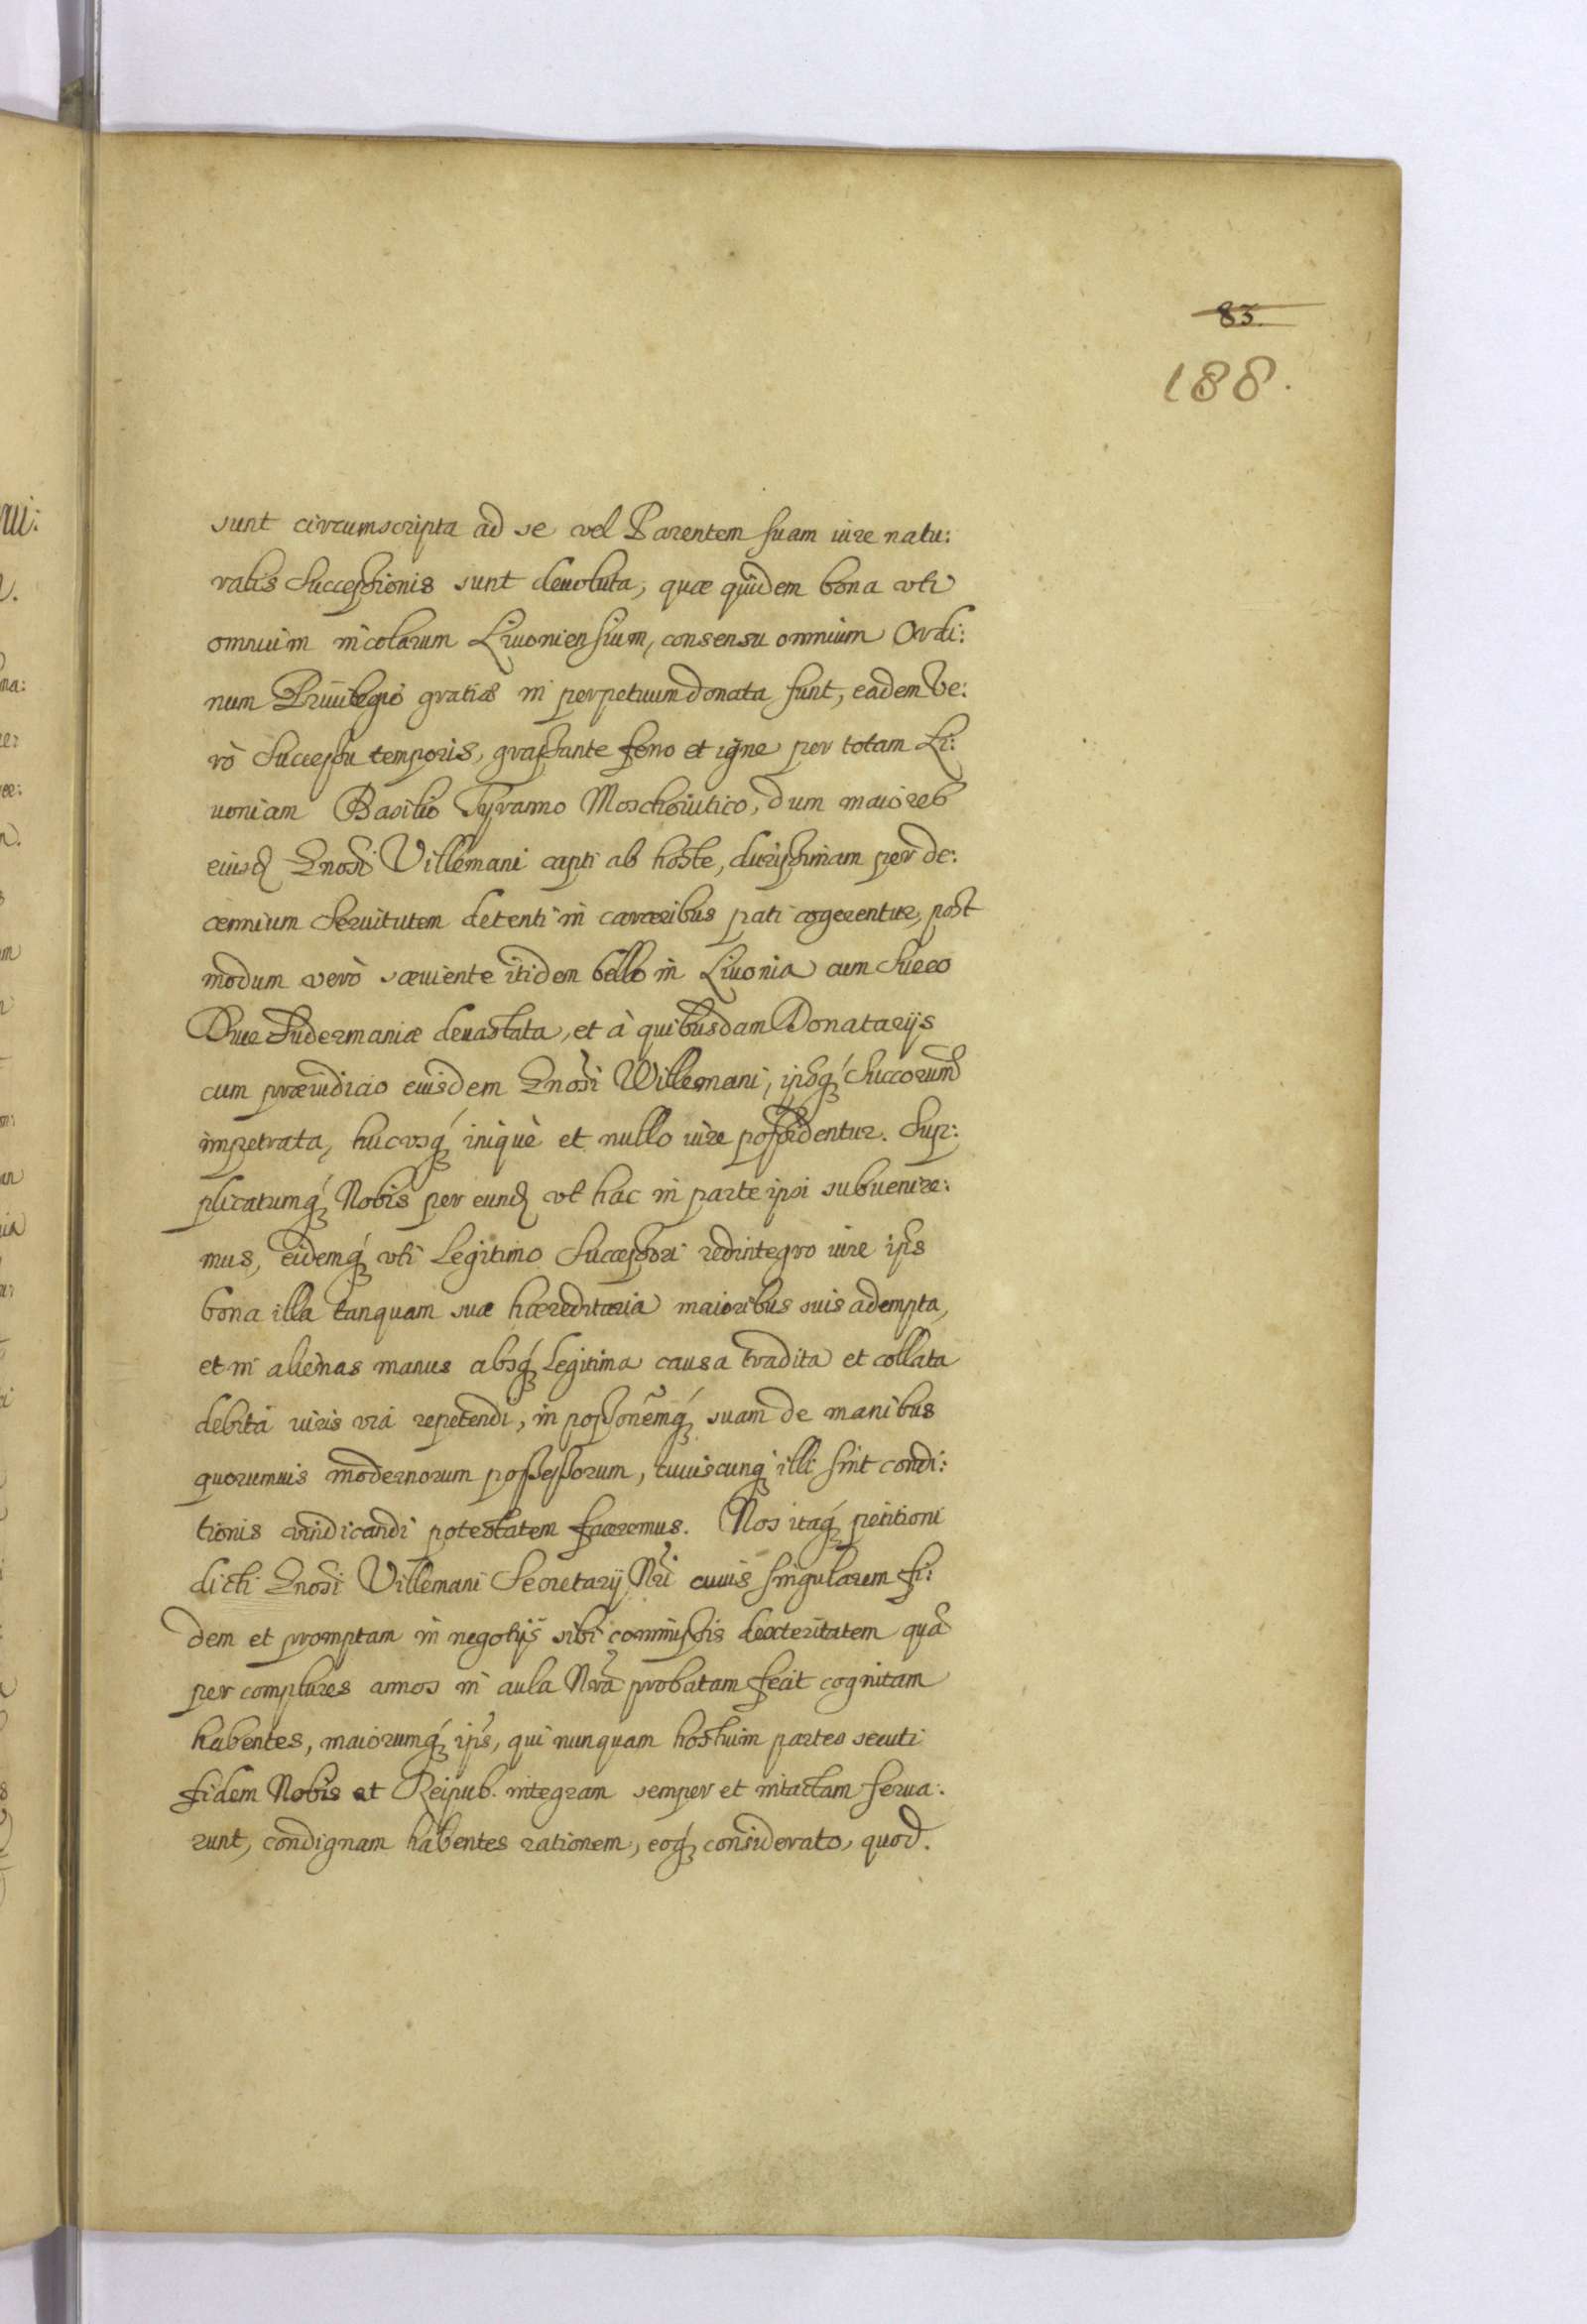 83.
188.
sunt circumscripta ad se vel Parentem suam iure natu:
ralis Successionis sunt deuoluta, quæ quidem bona vti
omnium incolarum Liuoniensium, consensu omnium Ordi:
num Priuilegio gratiæ in perpetuum donata sunt, eadem ve:
rò Successu temporis, grassante ferro et igne per totam Li:
uoniam Basilio Tyranno Moschouitico, dum maiores
eiusd Gnosi Villemani capti ab hoste, durissimam per de:
cennium Seruitutem detenti in carceribus pati cogerentur, post
modum verò sæuiente itidem bello in Liuonia cum Sueco
Duce Sudermaniæ deuastata, et à quibusdam Donatarijs
cum præiudicio eiusdem Gnosi Willemani, ipsq́ Succorum
impetrata, hucvsq́ iniquè et nullo iure possidentur. Sup:
plicatumq́ Nobis per eund vt hac in parte ipsi subuenire:
mus, eidemq́ vti Legitimo Successori redintegro iure ips
bona illa tanquam sua hæreditaria maioribus suis adempta,
et in alienas manus absq́ Legitima causa tradita et collata
debitâ iuris viâ repetendi, in possonemq́ suam de manibus
quorumuis modernorum possessorum, cuiuscunq illi sint condi:
tionis vindicandi potestatem faceremus. Nos itaq́ petitioni
dicti Gnosi Villemani Secretarij Nri cuius singularem fi:
dem et promptam in negotijs sibi commissis dexteritatem quã
per complures annos in aula Nra probatam fecit cognitam
habentes, maiorumq́ ips, qui nunquam hostium partes secuti
fidem Nobis et Reipub. integram semper et intactam serua:
runt, condignam habentes rationem, eoq́ considerato, quod.